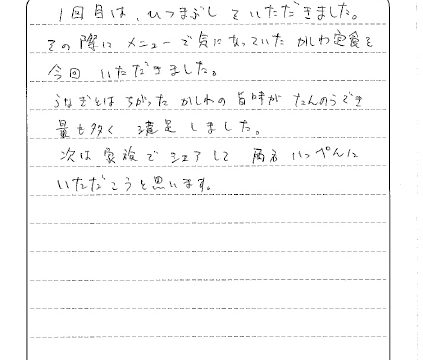 1回目は、ひつまぶしでいただきました。
その際にメニューで気になっていたかしわ定食を
今回いただきました。
うなぎとはちがったかしわの旨味がたんのうでき
量も多く満足しました。
次は家族でシェアして両方いっぺんに
いただこうと思います。